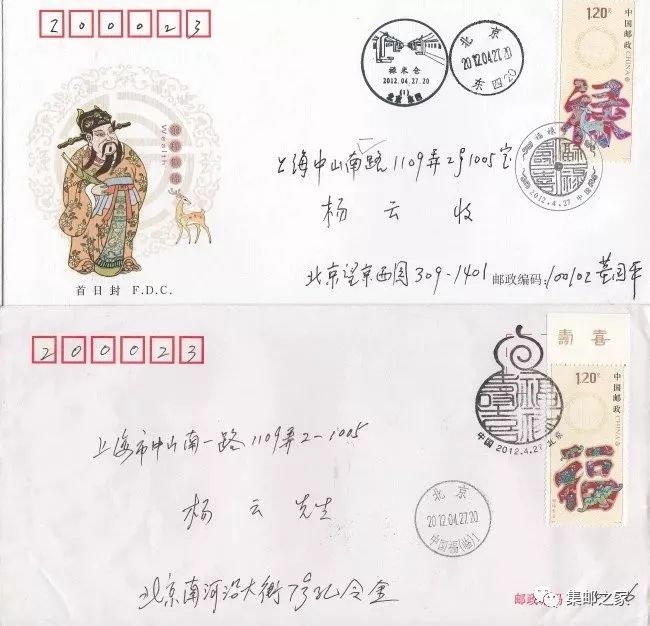 200023
禄米仓
2012.04.27.20
北京
2012.04.27.20
东四20
1.20元
中国邮政
CHINA
禄
Wealth
2012.4.27
中国
上海中山南路1109弄2号1005室
杨云 收
北京望京西园309-1401 邮政编码:100102
首日封 F.D.C.
200023
寿喜
1.20元
中国邮政
CHINA
福
中国 2012.4.27 北京
上海市中山南一路1109弄2-1005
杨云 先生
北京
2012.04.27.20
北京南河沿大街7号孔令金
邮政编码
集邮之家